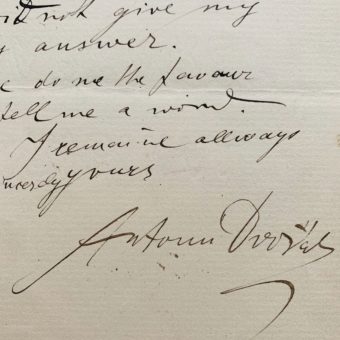 not give my
answer.
do me the favour
tell me a word.
I remaine allways
yours
Antonin Dvořák